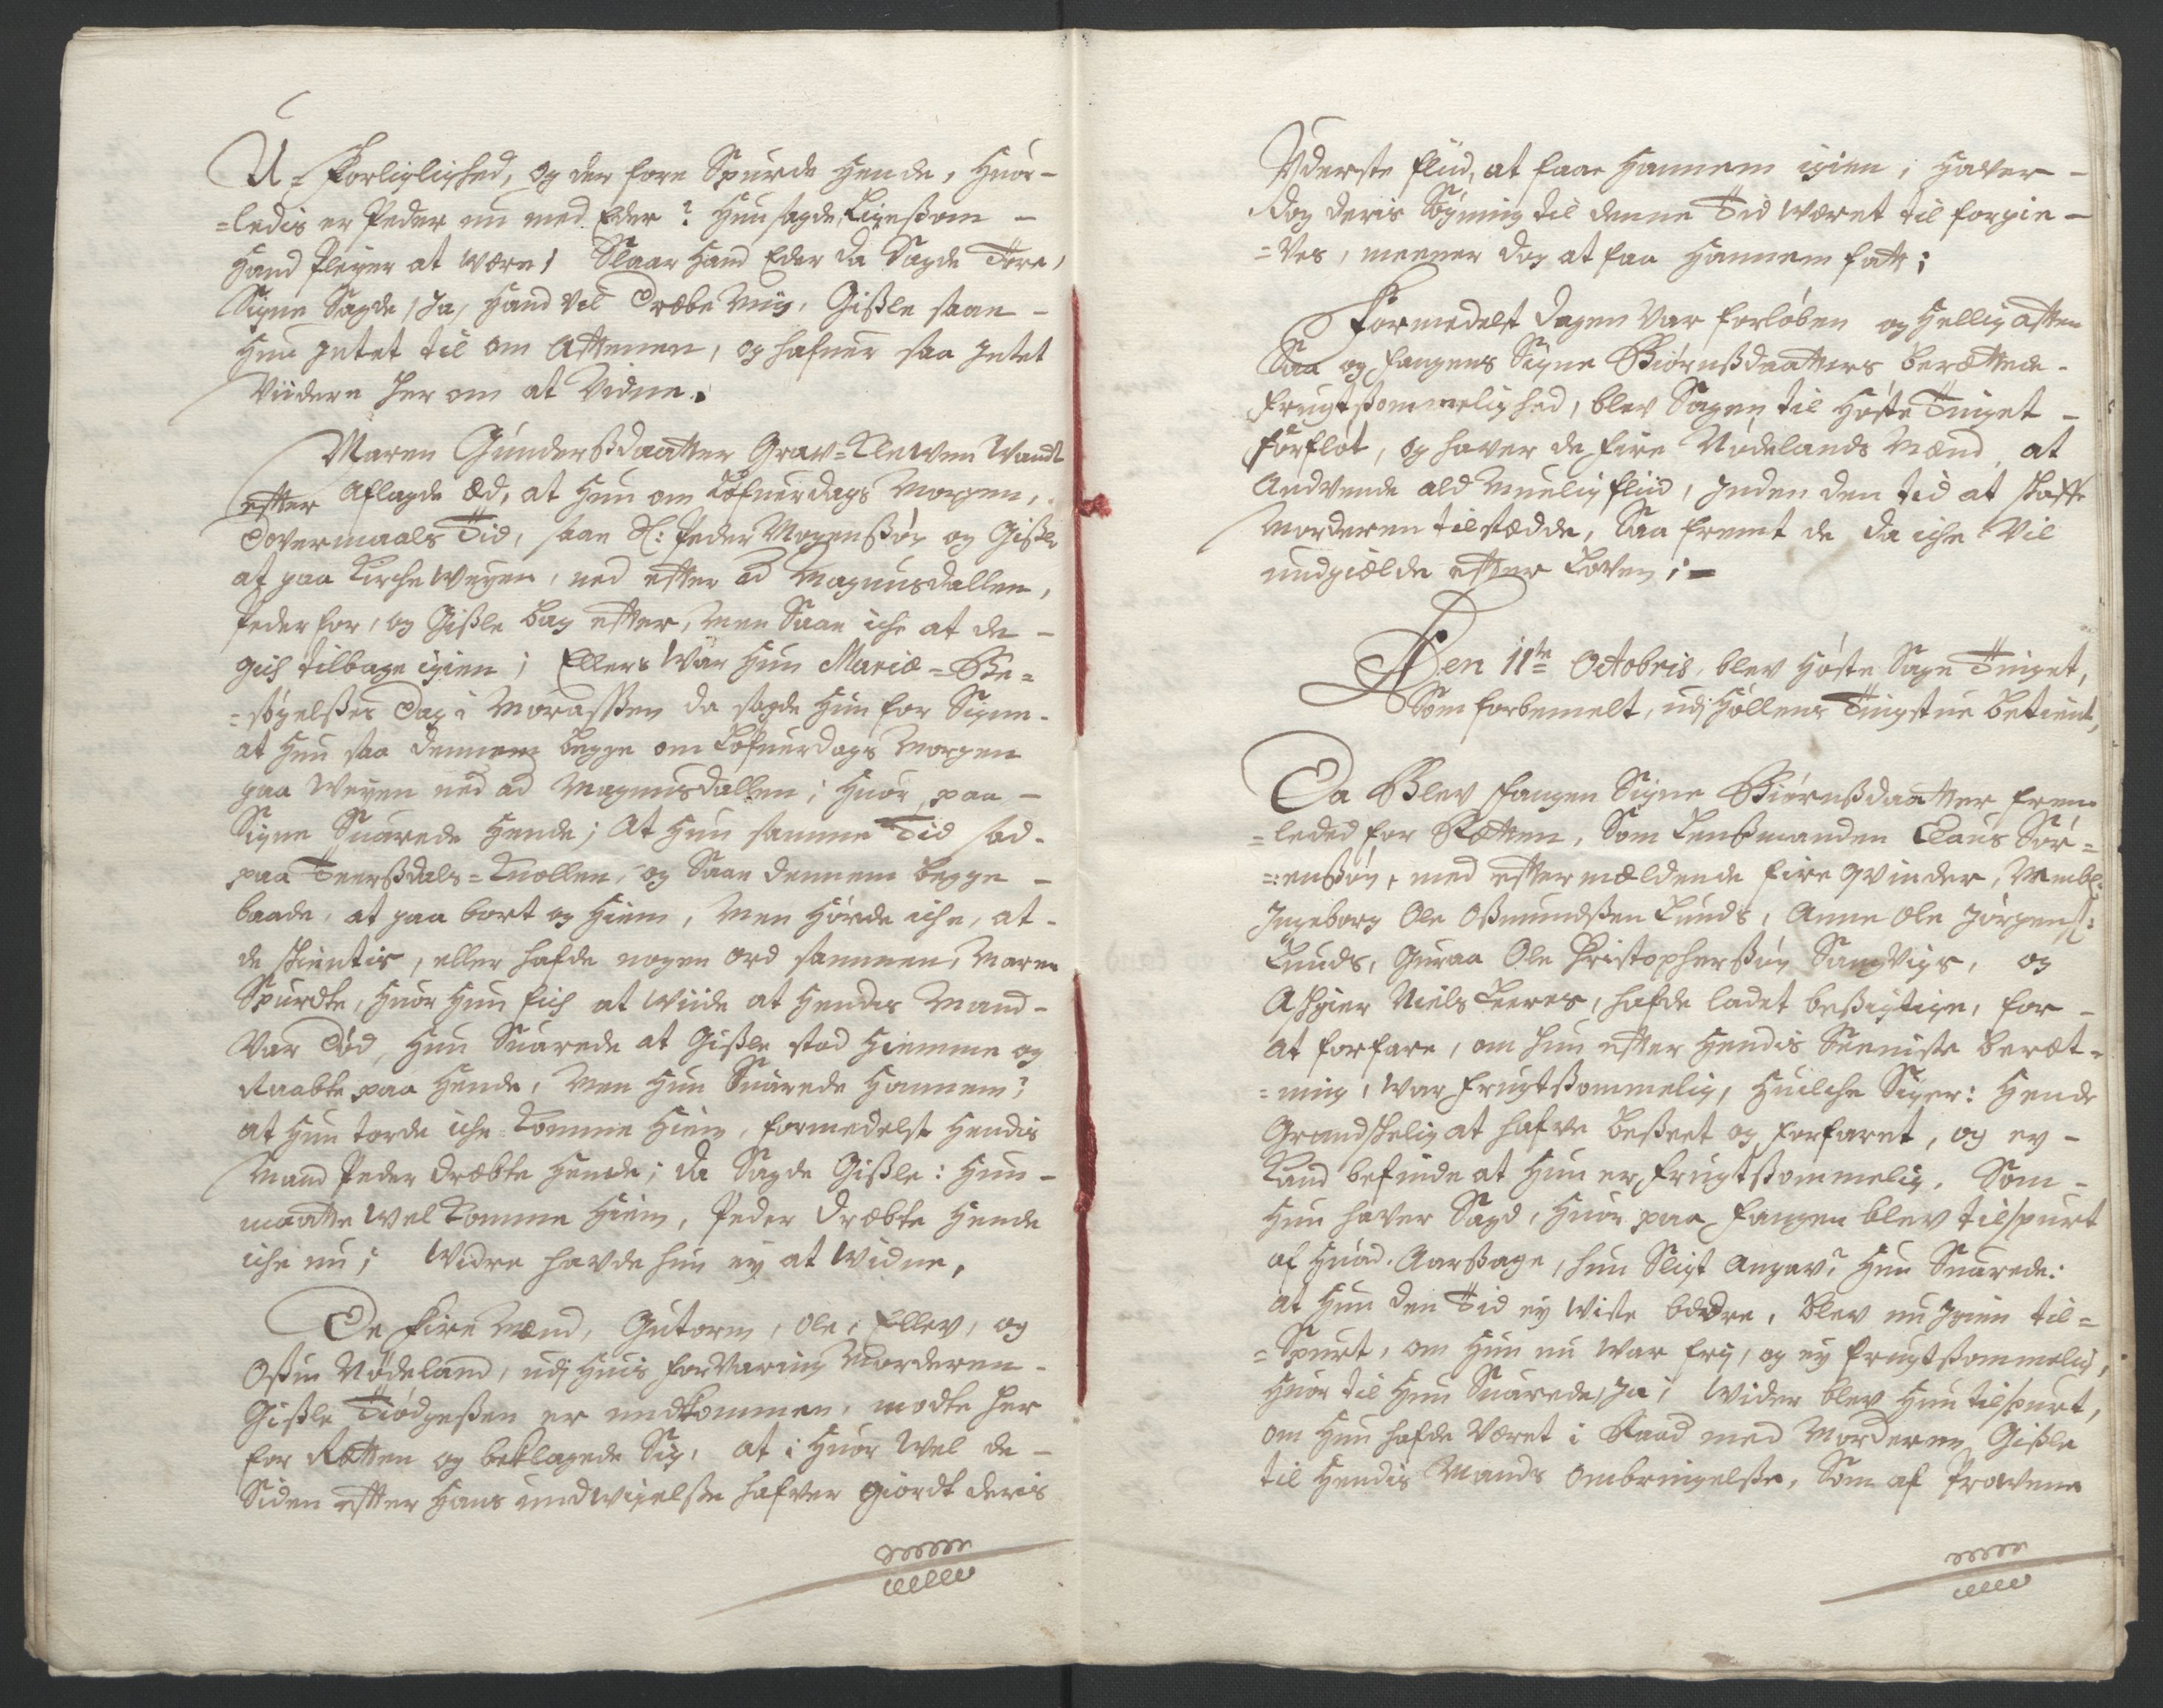 U-forligelighed, og der fore Spurde hende, huor-
=ledis er Peder nu med Eder? hun sagde, Ligesom -
hand Pleyer at være; Slaar hand Eder da Sagde Tore,
Signe Sagde, Ja, hand vil dræbe mig, Gisle saae -
hun intet til om Aftenen, og hafuer saa intet
Viidere her om at Vidne.
Maren Gunderßdaatter Grav=Klewen Wandt
efter Aflagde Æd, at hun om Løfuerdags Morgen,
Dovermaals Tid, saae Sl: Peder Mogenßøn og Gisle
at gaa Kirche weyen, ned efter ad Magnusdallen,
Peder for, og Gisle bag efter, men Saae iche at de -
gich tilbage igien; Ellers War hun Mariæ=Be=
=søgelßes Dag i Moraßen da sagde hun for Signe -
at hun saa dennem begge om Løfuerdags Morgen
paa Weyen ned ad Magnusdallen; huor paa -
Signe Suarede hende; At hun samme Tid sad -
paa Teerßdals=Knollen, og Saae dennem begge -
baade, at gaa bort og hiem, men hørde iche, at -
de skientis, eller hafde nogen ord sammen, Maren
Spurdte, huor hun fich at wiide at hendis Mand -
Var Død, hun Suarede at Gisle stod hiemme og
Raabte paa hende, men hun Suarede hannem;
at hun torde iche Komme hiem, formedelst hendis
Mand Peder dræbte hende; da Sagde Gisle: hun -
maatte wel Komme hiem, Peder dræbte hende
iche nu; Widre havde hun ey at Widne,
De fire Mænd, Gutorm, Ole, Ellev, og
Oßuu Nødeland, udj huis forvaring Morderen -
Gisle Tiødgeßen er undkommen, mødte her
for Retten og beklagede Sig, at i huor wel de -
Siden efter hans undwigelße hafver giordt deris
Yderste fliid, at faae hannem igien, haver -
dog deris Søgning til denne Tid wæret til forgie -
=Ves, meener dog at faa hannem fatt;
Formedelst dagen Var forløben og hellig aften
Saa og fangens Signe Biørnßdaatters berættede -
frugtßommelighed, blev Sagen til Høste Tinget -
forfløt, og haver de fire Nødelands Mænd at
Andvende ald Muelig fliid, inden den tid at skaffe
Morderen tilstædde, Saa fremt de da iche Vil
undgielde efter Loven; -
Den 11te Octobris, blev Høste Sage Tinget,
Som forbemelt, udj Høllens Tingstue betient,
Da Blev fangen Signe Biørnßdaatter frem
=leded for Rætten, Som Lenßmanden Claus Sør=
=:enßøn, med efter mældende fire qvinder, Nembl:
Ingeborg Ole Oßmundßen Lunds, Anne Ole Jørgenß:
Lunds, Guraa Ole Christopherßøn Sangvigs, og
Aßgier Niels Leeres, hafde ladet beßigtige, for -
at forfare, om hun efter hendis Seeniste beræt=
=ning, war frugtßommelig, huilche Siger: hende
Grandskelig at hafve beßeet og forfaret, og ey -
Kand befinde at hun er frugtßommelig, Som -
hun haver Sagd, huor paa fangen blev tilspurt
af huad Aarßage, hun Sligt angav? hun Suarede:
at hun den Tid ey wiste bædre, blev nu Igien til=
=Spurt, om hun nu war fry, og ey frugtßommelig,
huor til hun Suarede, Ja; wider blev hun tilspurt,
om hun hafde været i Raad med Morderen Gisle
til hendis Mands ombringelße, Som af Prowene